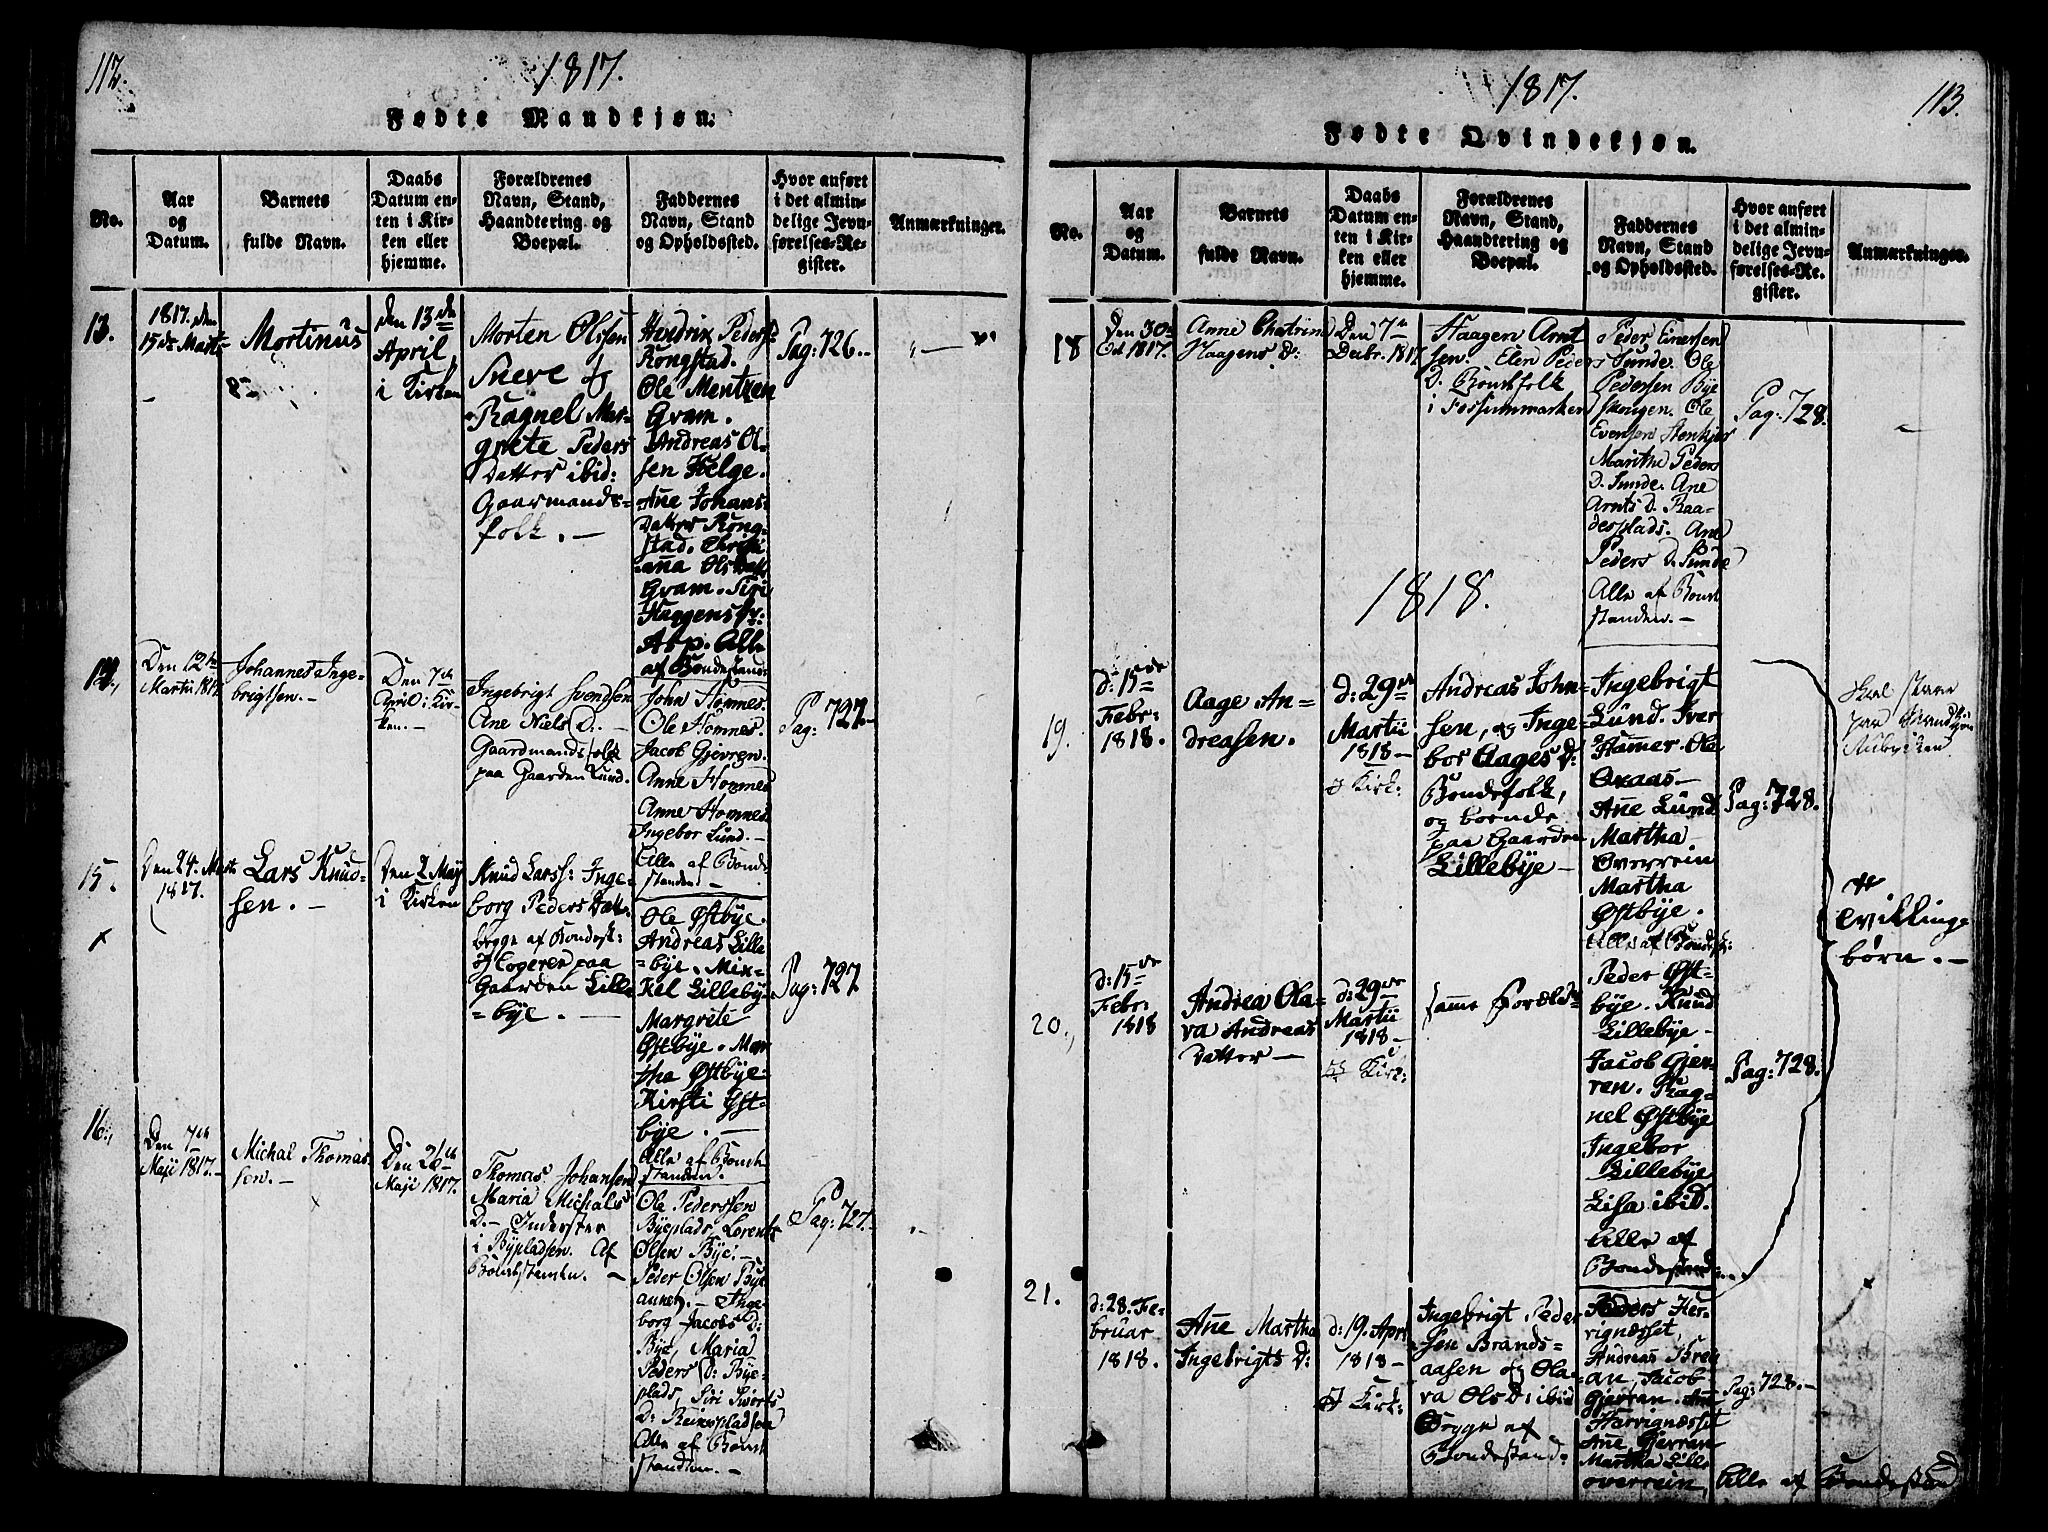 112.
1817.
Fødte Mandkjøn.
No.
Aar
og
Datum.
Barnets
fulde Navn.
Daabs
Datum en-
ten i Kir-
ken eller
hjemme.
Forældrenes
Navn, Stand,
Haandtering og
Boepæl.
Faddernes
Navn, Stand
og Opholdssted.
Hvor anført
i det almin-
delige Jevn-
førelses-Re-
gister.
Anmærkninger.
13.
1817. den
15de Marts
Mortinus
den 13de
April,
i Kirken
Morten Olssen
Sneve &
Ragnel Mar-
grete Peders
Datter ibid:
Gaarmands-
folk. —
Hendrix Peders:
Rongstad.
Ole Mentzen
Gram.
Andreas Ol-
sen Helge.
Ane Johans
Datter Rong-
stad. Christi
ana Ols Datt
Gram. Siri
Haagens Dr.
Asp. Alle
af Bondestand.
Pag: 726.
14.
Den 12te
Martii 1817.
Johannes Inge-
brigtsen.
Den 7de
April i Kir-
ken. —
Ingebrigt Svendsen
Ane Niels D. —
Gaardmands folk
paa Gaarden Lund.
John Hommes.
Ole Hommes.
Jacob Gjevren.
Anne Hommes
Anne Hommes
Ingebor Lund. —
Alle af Bonde
standen. —
Pag: 727.
15.
Den 24. Marts
1817.
Lars Knud-
sen. —
Den 2 May
i Kirken
Knud Larss: Inge-
borg Peders Datt:
begge af Bondesk:
og Logeren paa
Gaarden Lille
=bye. —
Ole Østbye.
Andreas Lille
=bye. Mix-
kel Lillebye
Margrete
Østbye. Mar
tha Østbye.
Kirsti Øst-
bye. —
Alle af Bonde
standen.
Pag: 727.
16.
Den 7de
Maji 1817.
Michal Thomas
sen. —
Maji 1817.
Thomas Johansen
Maria Michals
D. — Inderster
i Bÿpladsen. Af
Bondestanden. —
Ole Pederssen
Bÿeplads, Lorents
Olsen Bÿe. —
Peder Olsen Bÿe
Inge
borg Jacobs D:
Bÿe, Maria
Peders D: Bÿe-
plads, Siri
D: Reinspladsen
Alle af Bonde
standen. —
Pag: 727.
1817.
113.
Fødte Qvindekjøn.
No.
Aar
og
Datum.
Barnets
fulde Navn.
Daabs
Datum en-
ten i Kir-
ken eller
hjemme.
Forældrenes
Navn, Stand,
Haandtering og
Boepæl.
Faddernes
Navn, Stand
og Opholdssted.
Hvor anført
i det almin-
delige Jevn-
førelses-Re-
gister.
Anmærkninger.
18
Den 30te
Oct 1817.
Anne Chatrina
Haagens D:
Den 7de
Decbr. 1817
Haagen Arnt
sen. Elen Peders
D. Bondefolk
i Fossummarken
Peder Einersen
Sunde. Ole
Pedersen Bye
skougen. Ole
Evensen Stenkjær
Marithe Peders
D. Sunde. Ane
Arnts D. Raa-
desplads. Ane
Peders D. Sunde
Alle af Bonde
standen. —
Pag: 728.
1818.
19.
d: 15de
Febr:
1818.
Aage An-
dreasen.
d: 29de
Martii
1818 —
Kirk:
Andreas John-
sen, og Inge-
bor Aages D:
Bondefolk,
og boende
paa Gaarden
Lillebÿe —
Ingebrigt
Lund. Iver
Hammer. Ole
Oxaas —
Ane Lund
Martha
Overrein
Martha
Østbye.
Alle af Bondest:
Pag: 728.
Skal staae
paa Mandkiøn
Tvilling-
børn. —
20.
d: 15de
Febr:
1818
Andrea Ola-
va Andreas
Datter —
d: 29de
Martii
1818 —
Kirk:
samme Foræld:
Peder Øst-
bÿe. Knud
Lillebÿe —
Jacob Gjev-
ren. Rag-
nel Østbÿe
Ingebor
Lillebÿe
Lisa ibid.
Alle af
Bondestand.
Pag: 728.
21.
d: 28. Fe-
bruar
1818.
Ane Martha
Ingebrigts D:
d: 19. Apr:
1818 —
Kirk:
Ingebrigt Peder
sen Brands-
aasen og Ola-
va Ols D: ibid
Begge af
Bondestand:
Peders Her-
rignæsset,
Andreas Brei
an, Jacob
Gjevran. Ane
Harrignæsset
Ane Gjevran
Martha Lille
overrein, Alle af Bondestand
Pag: 728. —